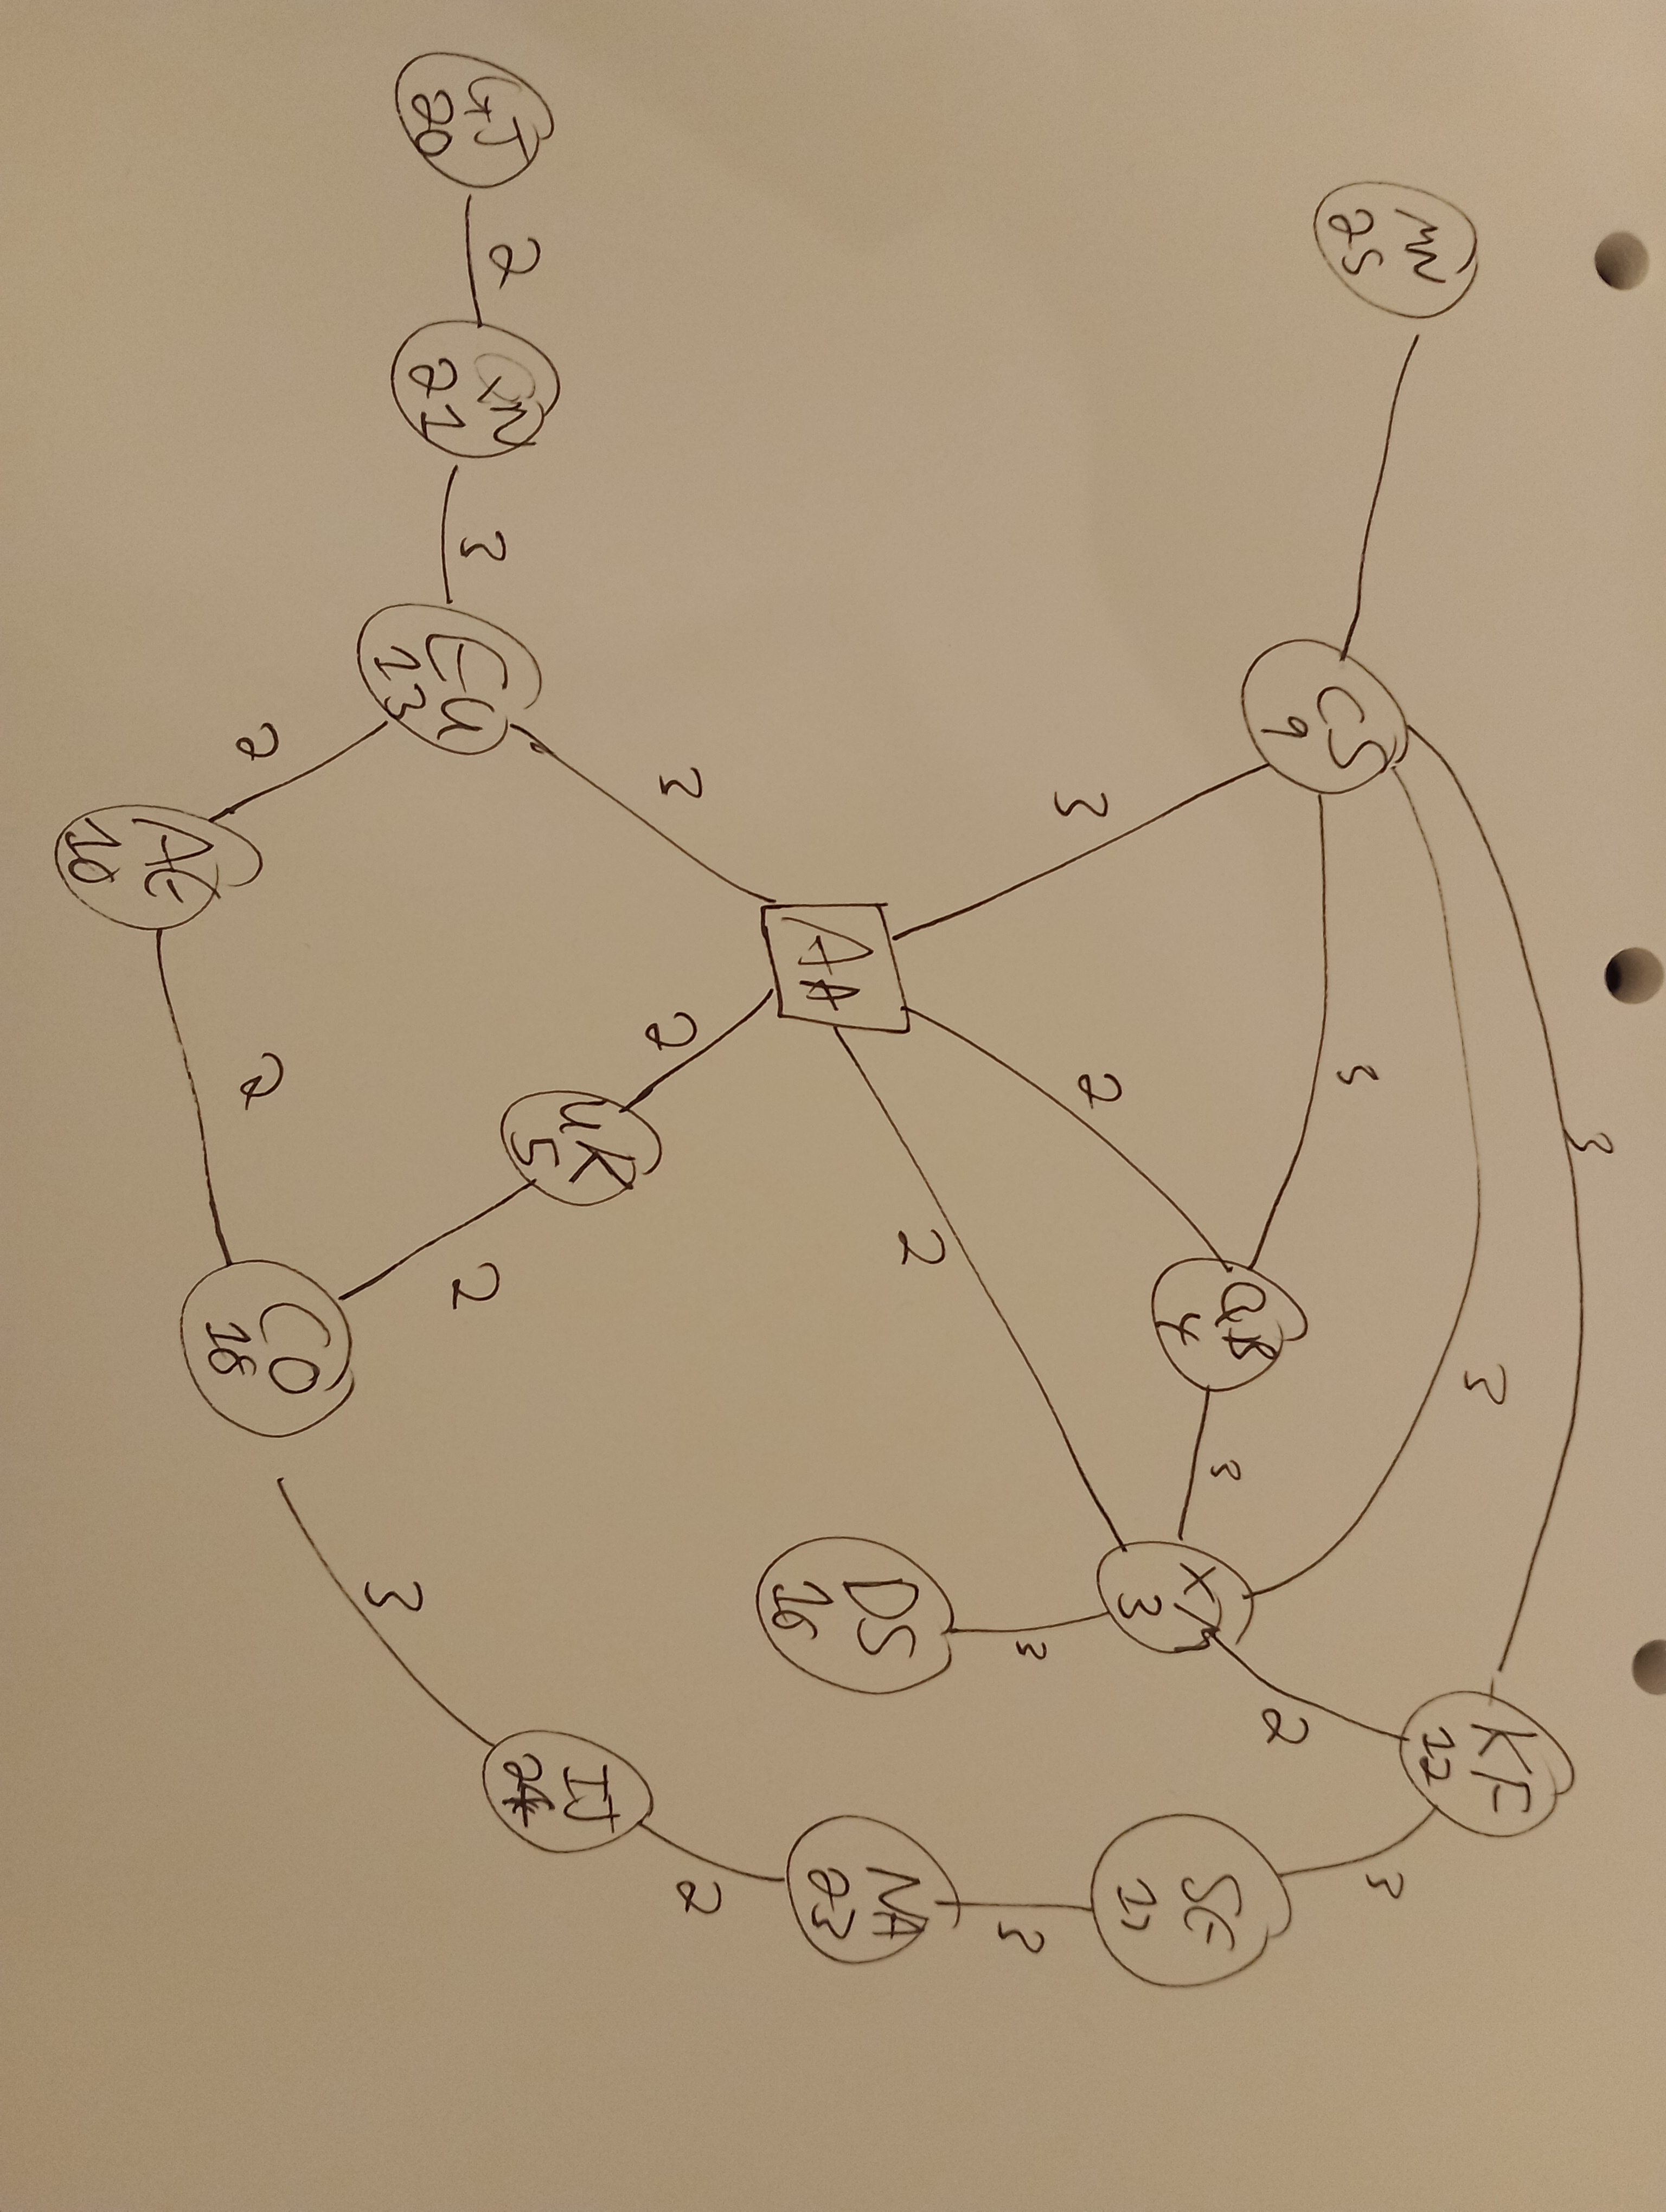 3
KF
12
3
MN
25
CS
9
3
3
2
QB
4
3
XM
3
SE
17
3
2
3
3
2
AA
DS
16
NA
23
3
2
2
UK
5
IJ
24
GJ
20
2
QN
21
3
EU
13
2
3
2
2
CO
18
AE
10